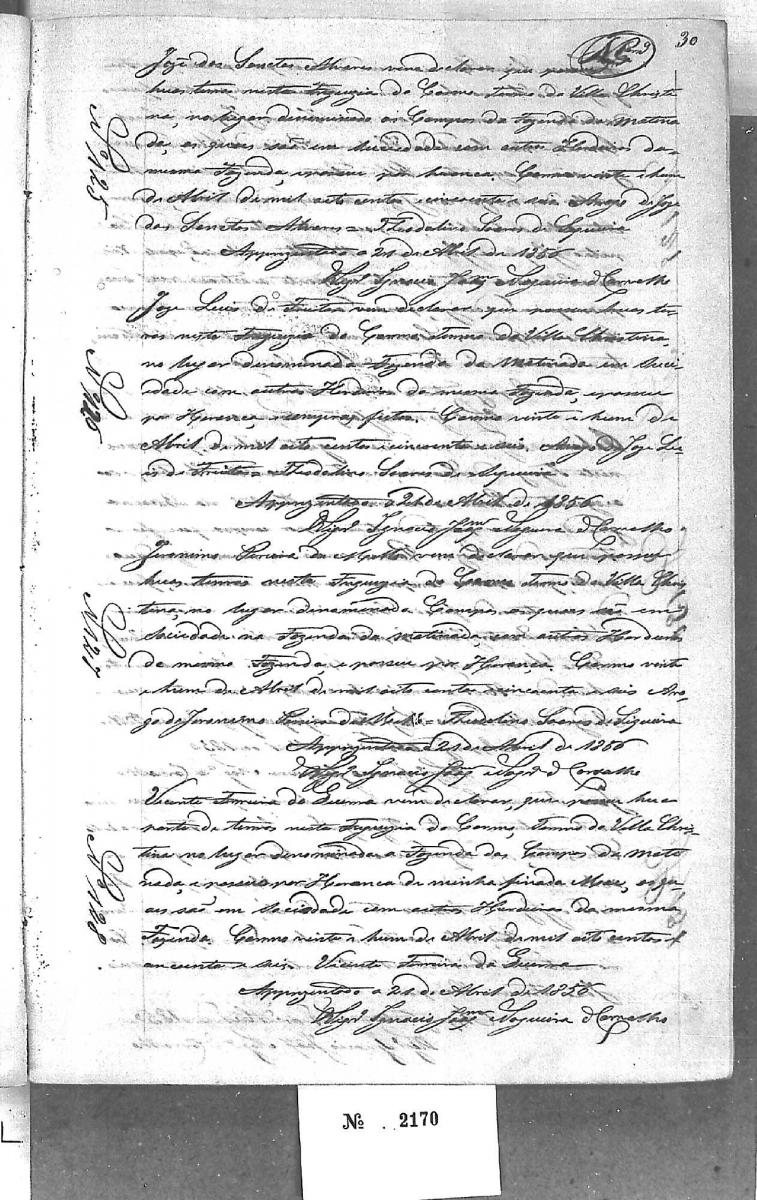 30
José dos Sanctos Alveres vem declarar que possue
huas terras nesta Freguezia do Carmo Termo da Villa Christi
na, no lugar dinuminado os Campos da Fazenda da Matina
da, as quais saõ em Suciedade com outros Herdeiros da
mesma Fazenda, e possue por herança. Carmo vinte e hum
de Abril de mil oito centos e cincoenta e seis Arogo de José
dos Sanctos Alveres = Theodolino Soares de Siqueira
Apprezentado a 21 de Abril de 1856
O Vigrº Ignacio Joaqm Nogueira d Carvalho
Jose Luis de Freitas vem declarar que possue huas ter
ras nesta Freguezia do Carmo Termo da Villa Christina,
no lugar denominado Fazenda da Matinada em Suci
idade com outros Herdeiros da mesma Fazenda, e possue
por Herança, e compras feitas. Carmo vinte e hum de
Abril de mil oito centos e cincoenta e seis. Arogo de Jose Lu
is de Freitas = Theodolino Soares de Siqueira
Apprezentado a 21 de Abril de 1856
O Vigrº Ignacio Joaqm Nogueira d Carvalho
Jeronimo Pereira da Motta vem declarar que possue
huas terras nesta Freguezia do Carmo Termo da Villa Chris
tina, no lugar dinominado Campos, as quais saõ em
Sociedade na Fazenda da Matinada, com outros Herdeiros
da mesma Fazenda, e possue por Herança. Carmo vinte
e hum de Abril de mil oito centos e cincoenta e seis Aro
go de Jeronimo Pereira da Motta = Theodolino Soares de Siqueira
Apprezentado a 21 de Abril de 1856
O Vigrº Ignacio Joaqm Nogrª d Carvalho
Vicente Ferreira da Guerra vem declarar, que possue hua
parte de terras nesta Freguezia do Carmo, Termo da Villa Chris
tina no lugar denominado a Fazenda dos Campos da Mati
nada, e possuo por Herança de minha finada Mae, as qu
ais saõ em Sociedade com outros Herdeiros da mesma
Fazenda. Carmo vinte e hum de Abril de mil oito centos e
cincoenta e seis. Vicente Ferreira da Guerra
Apprezentado a 21 de Abril de 1856
O Vigrº Ignacio Joaqm Nogueira d Carvalho
Nº 125
Nº 126
Nº 127
Nº 128
№ 2170